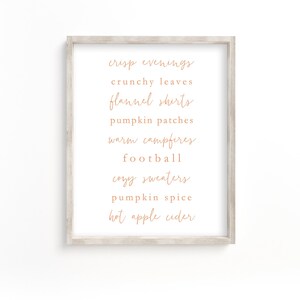 crisp evenings
crunchy leaves
flannel shirts
pumpkin patches
warm campfires
football
cozy sweaters
pumpkin spice
hot apple cider